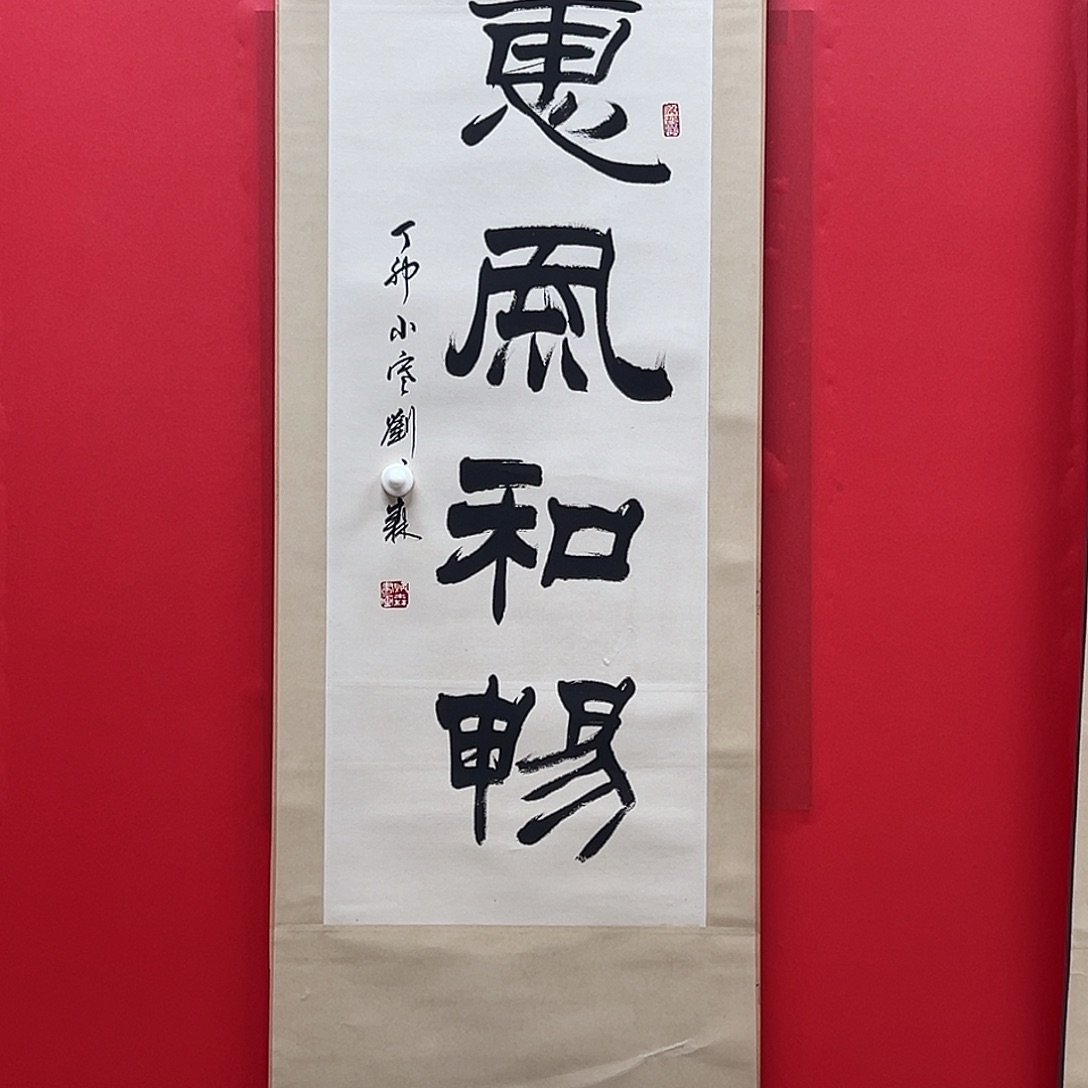 惠風和暢
丁卯小寒劉
森